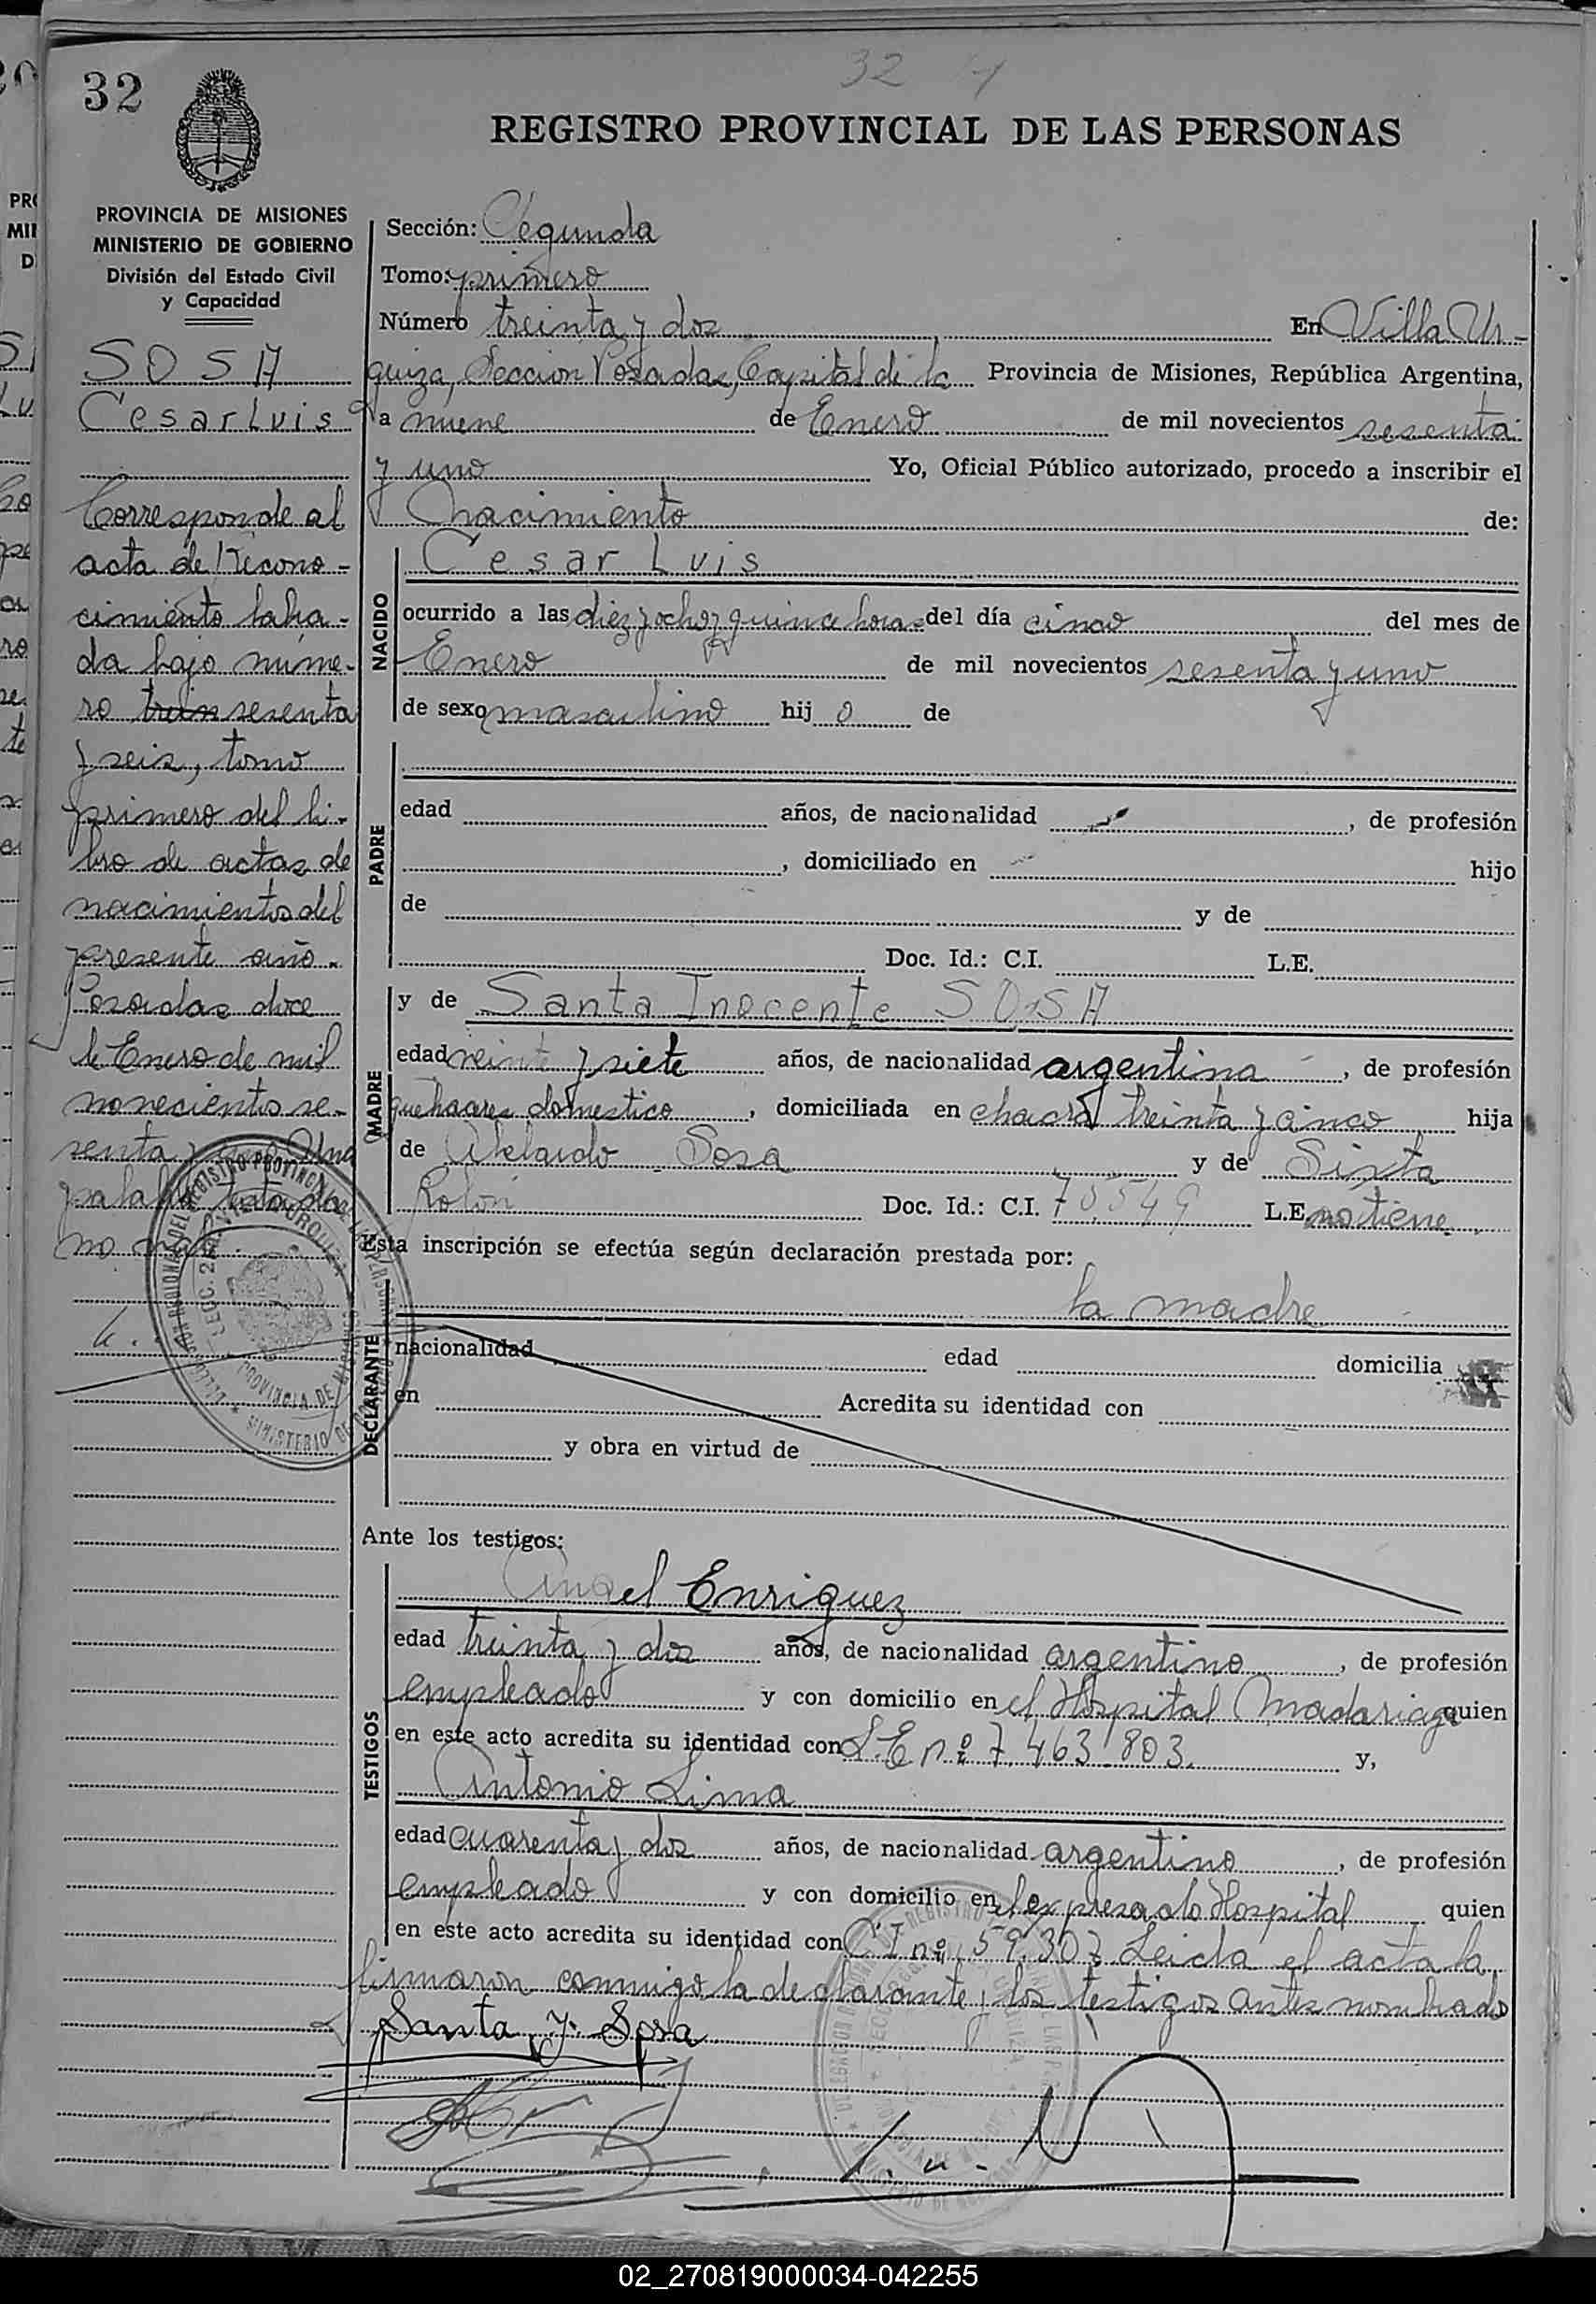 32
32
REGISTRO PROVINCIAL DE LAS PERSONAS
PROVINCIA DE MISIONES
MINISTERIO DE GOBIERNO
División del Estado Civil
y Capacidad
SOSA
Cesar Luis
Corresponde al
acta de Recono-
cimiento labra-
da bajo nume-
ro trein sesenta
y seis, tomo
primero del li-
bro de actas de
nacimientos del
presente año.
Posadas doce
de Enero de mil
novecientos se-
senta y uno Una
palabra testada
no vale.
Sección: Segunda
Tomo: primero
Número treinta y dos En Villa Ur-
quiza, Seccion Posadas, Capital de la Provincia de Misiones, República Argentina,
a nueve de Enero de mil novecientos sesenta
y uno Yo, Oficial Público autorizado, procedo a inscribir el
Nacimiento de:
NACIDO
Cesar Luis
ocurrido a las diez y ocho y quince horas del día cinco del mes de
Enero de mil novecientos sesenta y uno
de sexo masculino hij o de
PADRE
edad años, de nacionalidad , de profesión
, domiciliado en hijo
de y de
Doc. Id.: C.I. L.E.
MADRE
y de Santa Inocente SOSA
edad veinte y siete años, de nacionalidad argentina , de profesión
quehaceres domestico , domiciliada en chacra treinta y cinco hija
de Abelardo Sosa y de Sixta
Rolón Doc. Id.: C.I. 70.549 L.E. no tiene
Esta inscripción se efectúa según declaración prestada por:
la madre
DECLARANTE
nacionalidad edad domicilia
en Acredita su identidad con
y obra en virtud de
Ante los testigos:
TESTIGOS
Angel Enriquez
edad treinta y dos años, de nacionalidad argentino , de profesión
empleado y con domicilio en el Hospital Madariaga quien
en este acto acredita su identidad con L.E nº 7.463.803 y,
Antonio Lima
edad cuarenta y dos años, de nacionalidad argentino , de profesión
empleado y con domicilio en el expresado Hospital quien
en este acto acredita su identidad con C.I nº 59.307 Leida el acta la
firmaron conmigo la declarante y los testigos antes nombrado
Santa J. Sosa
02_270819000034-042255